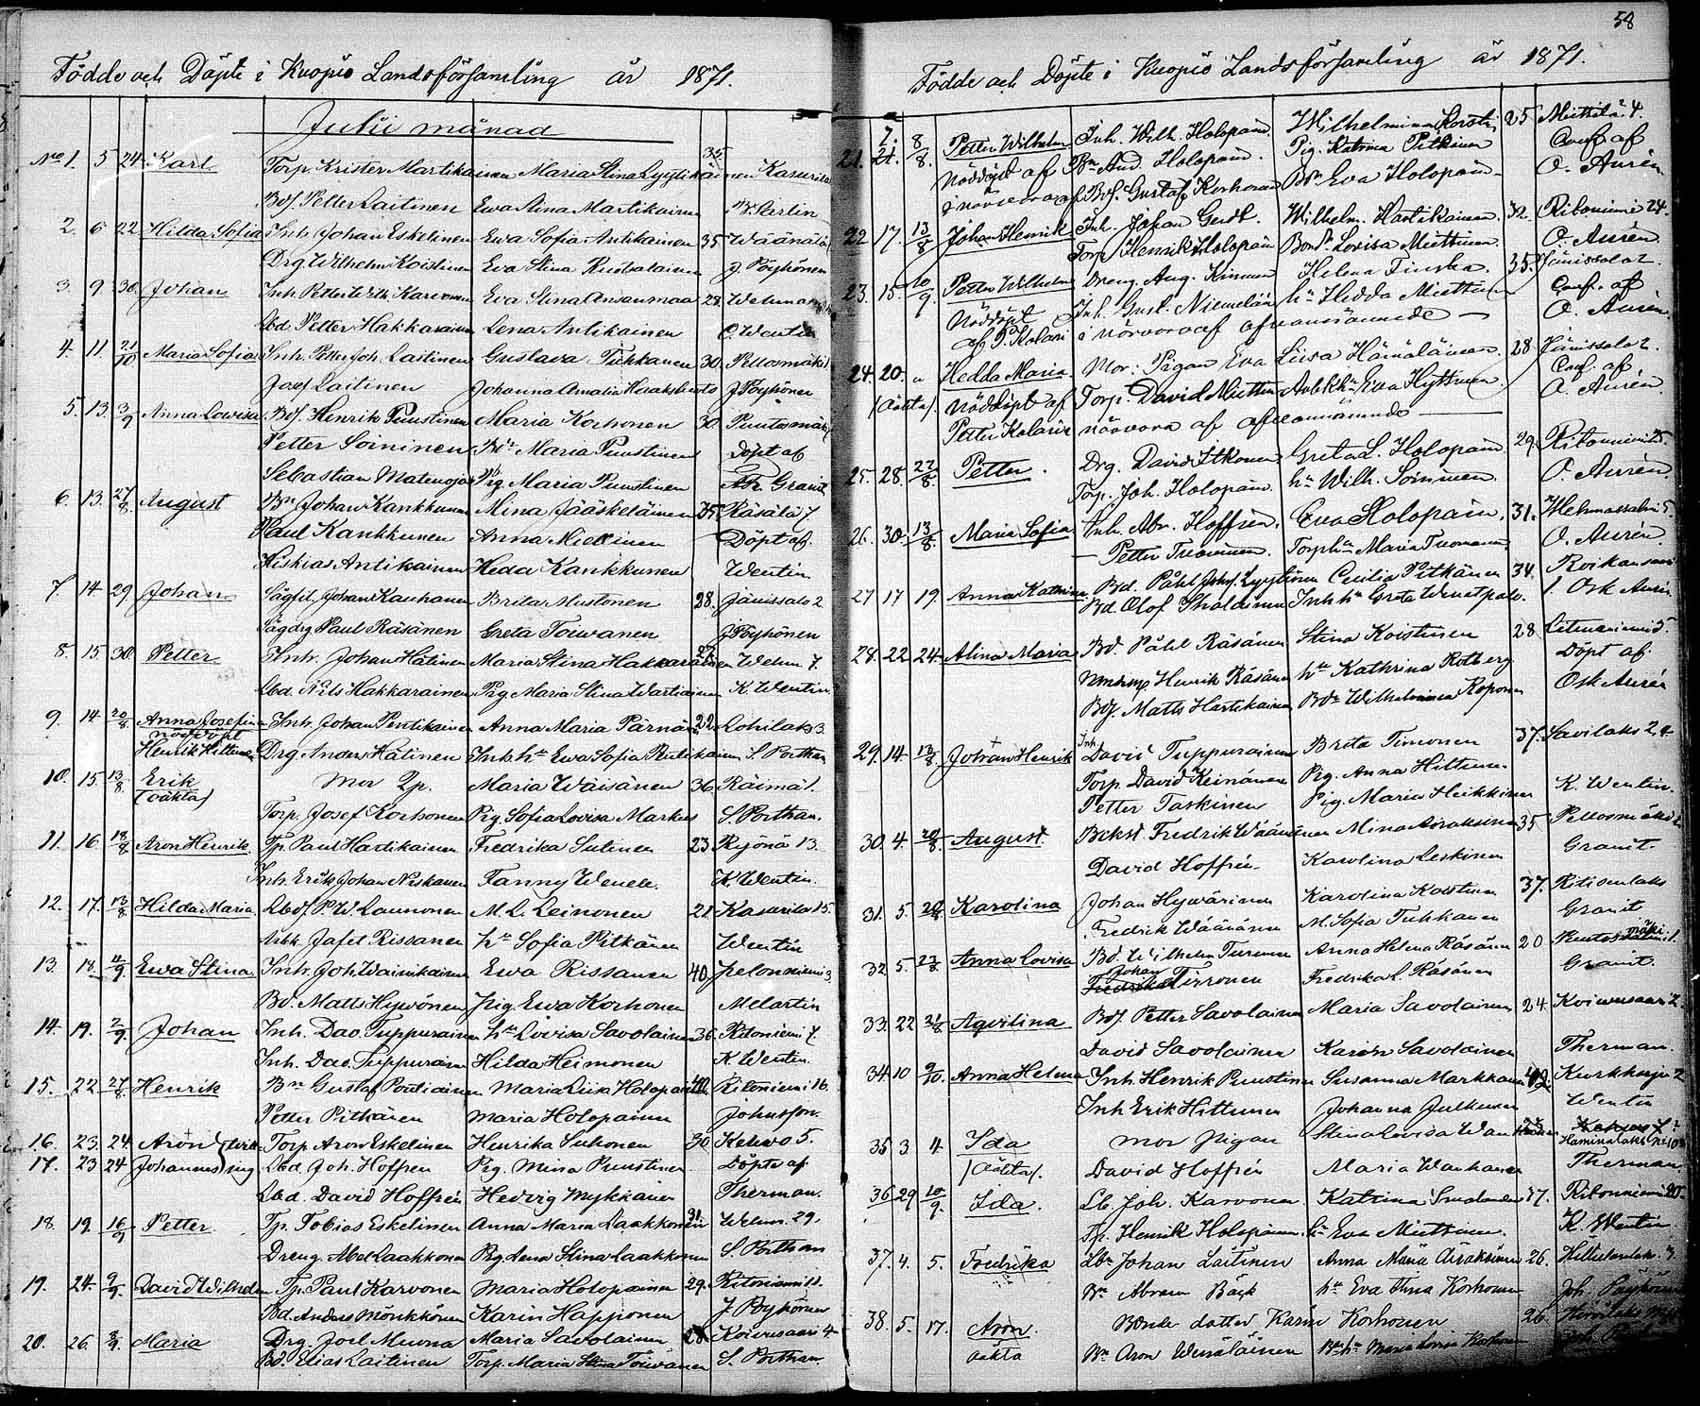 58
Födde och Döpte i Kuopio Landsförsamling år 1871.
Julii månad
No 1. 5 24 Karl Torp. Krister Martikainen Maria Stina Lyytikäinen 35 Kasurila
Bds. Petter Laitinen Ewa Stina Martikainen
2. 6 22 Hilda Sofia Inh. Johan Eskelinen Ewa Sofia Antikainen 35 Wäänälä
Drg. Wilhelm Koistinen Eva Stina Ruotsalainen J. Pöyhönen
3. 9 30 Johan Inh. Petter Wilh. Karvonen Eva Stina Ansanmaa 28
Petter Hakkarainen Lena Antikainen Wentin
4. 11 21/10 Maria Sofia Inh. Petter Joh. Laitinen Gustava Tiihkanen 30 Pellosmäki
Josef Laitinen Johanna Amalia J. Pöyhönen
5. 13. 3/9 Anna Lowisa Bds. Henrik Puustinen Maria Korhonen 30 Puutosmäki
Petter Soininen Maria Puustinen Döpt af
Sebastian Pig. Maria Puustinen Granit
6. 13. 27/8 August Bn Johan Kankkunen Mina Jääskeläinen 35 Räsälä 7
Paul Kankkunen Anna Miettinen Döpt af
Hiskias Antikainen Heda Kankkunen Wentin
7. 14 29 Johan Johan Kauhanen Brita Mustonen 28. Jänissalo 2
Paul Räsänen Greta Toiwanen J. Pöyhönen
8. 15 30 Petter Inh. Johan Hätinen Maria Stina Hakkarainen 27 Wehm. 7.
Nils Hakkarainen Pig Maria Stina Wartiainen K. Wentin
9. 14 20/8 Anna Josefina Inh. Johan Pentikainen Anna Maria Pärnänen 22 Lohilaks 3.
nöddöpt
Henrik Hiltunen Drg. Anders Hätinen Inh. hu Ewa Sofia Pentikainen S. Porthan
10. 15 13/8 Erik Mor Maria Wäisänen 36. Räimä 1.
(oäkta) Torp. Josef Korhonen Pig. Sofia Lovisa S. Porthan.
11. 16 18/8 Aron Henrik Tp. Paul Hartikainen Fredrika Sutinen 23 Ryönä 13.
Inh. Erik Johan Niskanen Fanny K. Wentin.
12. 17. 13/8 Hilda Maria P. W. Launonen M. L. Leinonen 21 Kasurila 15.
Jafet Rissanen hu Sofia Pitkänen Wentin
13. 18. 4/9 Ewa Stina Inh. Joh. Wainikainen Ewa Rissanen 40
Bd. Matts Hywönen Pig. Ewa Korhonen Melartin
14. 19. 2/9 Johan Inh. Dav. Tuppurainen hu Lovisa Savolainen 36. Ritoniemi 7.
Inh. Dav. Tuppurainen Hilda Heimonen K. Wentin
15. 22 27/8 Henrik Bn Gustaf Pentiainen Maria Liisa Holopainen 40 Ritoniemi 16.
Petter Pitkänen Maria Holopainen Johnsson.
16. 23. 24 Aron Torp. Aron Eskelinen Henrika Suhonen 30 Kehvo 5.
17. 23 24 Johannes Joh. Hoffren Pig. Mina Puustinen Döpte af
David Hoffrén Hedvig Mykkänen Therman.
18. 19. 16/9 Petter Tp. Tobias Eskelinen Anna Maria Laakkonen 31. Wehm. 29.
Dreng Abel Laakkonen Pig Anna Stina Laakkonen S. Porthan
19. 24 9/9 David Wilhelm Tp. Paul Karvonen Maria Holopainen 29. Ritoniemi
Bd. Anders Mönkkönen Karin Happonen J. Pöyhönen
20. 26. Maria Drg. Joel Muona Maria Savolainen Koivusaari 4
Bd. Elias Laitinen Torp. Maria Stina Toiwanen S. Porthan
Födde och Döpte i Kuopio Landsförsamling år 1871.
21. 8/8. Petter Wilhelm Inh. Wilh. Holopain. Wilhelmina 25 Miettilä 4.
Nöddöpt af Bn And. Holopain. Pig. Katrina Pitkänen Conf. af
i närvaro af Bds. Gustaf Korhonen Eva Holopain O. Aurén
22 17. 13/8 Johan Henrik Inh. Johan Wilhelm. Hartikainen. 32. Ritoniemi 24.
Torp. Henrik Holopain Lovisa Miettinen O. Aurén.
23. 15. 10/9. Petter Wilhelm Dreng. Aug. Kinnunen Helena 35. Jänissalo 2
Nöddöpt Inh. Gust. Niemeläin hu Hedda Miettinen Conf. af
af P. Kolari i närvaro af ofvannämnde O. Aurén.
24. 20. Hedda Maria Mor: Pigan Eva Liisa Hämäläinen. 28 Jänissalo 2.
(Oäkta). Nöddöpt af Torp. David Miettinen Eva Hyttinen Conf. af
Petter Kolari närvaro af ofvannämnde O. Aurén
25. 28. 22/8 Petter. Drg. David Itkonen Greta L. Holopain 29. Ritoniemi 25.
Torp. Joh. Holopain. hu Wilh. Soininen. O. Aurén
26. 30. 13/8. Maria Sofia Inh. Abr. Hoffrén. Eva Holopain. 31. Wehmassalmi 5.
Petter Tuovinen. Maria Tuovinen O. Aurén.
27 17 19. Anna Kathrina Bd. Påhl Johs. Lyytinen Cecilia Pitkänen 34.
Bd. Olof Inh. hu Greta Osk. Aurén
28. 22 24 Alina Maria Bd. Påhl Räsänen Stina Koistinen 28
Henrik Räsänen hu Kathrina Rotberg Döpt af
Bds. Matts Hartikainen Wilhelmina Koponen Osk Aurén
29. 14. 13/8. Johan Henrik Inh. David Tuppurainen Brita Timonen 37. Savilaks 2,4
Torp. David Keinänen Pig. Anna Hiltunen
Petter Taskinen Pig. Maria Heikkinen K. Wentin.
30. 4. 20/8. August Bckst. Fredrik Wäänänen Mina 35 Pellosmäki
David Hoffrén Karolina Leskinen Granit.
31. 5. 20/8 Karolina Johan Hyvärinen Karolina 37. Ritisenlaks
Fredrik Wäänänen M. Sofia Tiihkanen Granit
32. 5. 23/8 Anna Lovisa Bd. Wilhelm Turunen Anna Helena Räsänen 20 Puutosmäki 1.
Johan Tirronen Fredrika L. Räsänen Granit.
33. 22 31/8 Aqvilina Bds. Petter Savolainen Maria Savolainen 24. Koivusaari 2.
David Savolainen Karin Savolainen Therman.
34. 10 9/10. Anna Helena Inh. Henrik Puustinen Susanna Markkanen 42 Kurkharju 2
Inh Erik Hiltunen Johanna Julkunen Wentin
35 3 4. Ida mor pigan Stina Lovisa
(Oäkta). David Hoffrén Maria Wauhkonen Therman.
36. 29 10/9. Ida. Lb. Joh. Karvonen Katrina 37. Ritoniemi 20.
Tp. Henrik Holopainen hu Eva Miettinen. K. Wentin
37. 4. 5. Fredrika Lbn Johan Laitinen Anna Maria Asikainen 26.
Bn Abram Bäck hu Eva Stina Korhonen Joh. Pöyhönen
38. 5. 17. Aron. Bonde dotter Karin Korhonen 26.
oäkta Bn Aron Wenäläinen hu Maria Lovisa Korhonen